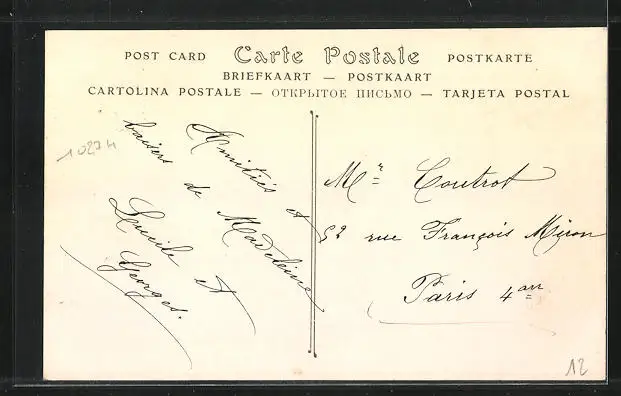 POST CARD Carte Postale POSTKARTE
BRIEFKAART — POSTKAART
CARTOLINA POSTALE — ОТКРЫТОЕ ПИСЬМО — TARJETA POSTAL
10274
Amitiés et
baisers de Madeleine
Lucile et
Georges.
Mr Coutrot
52 rue François Miron
Paris 4arr
12